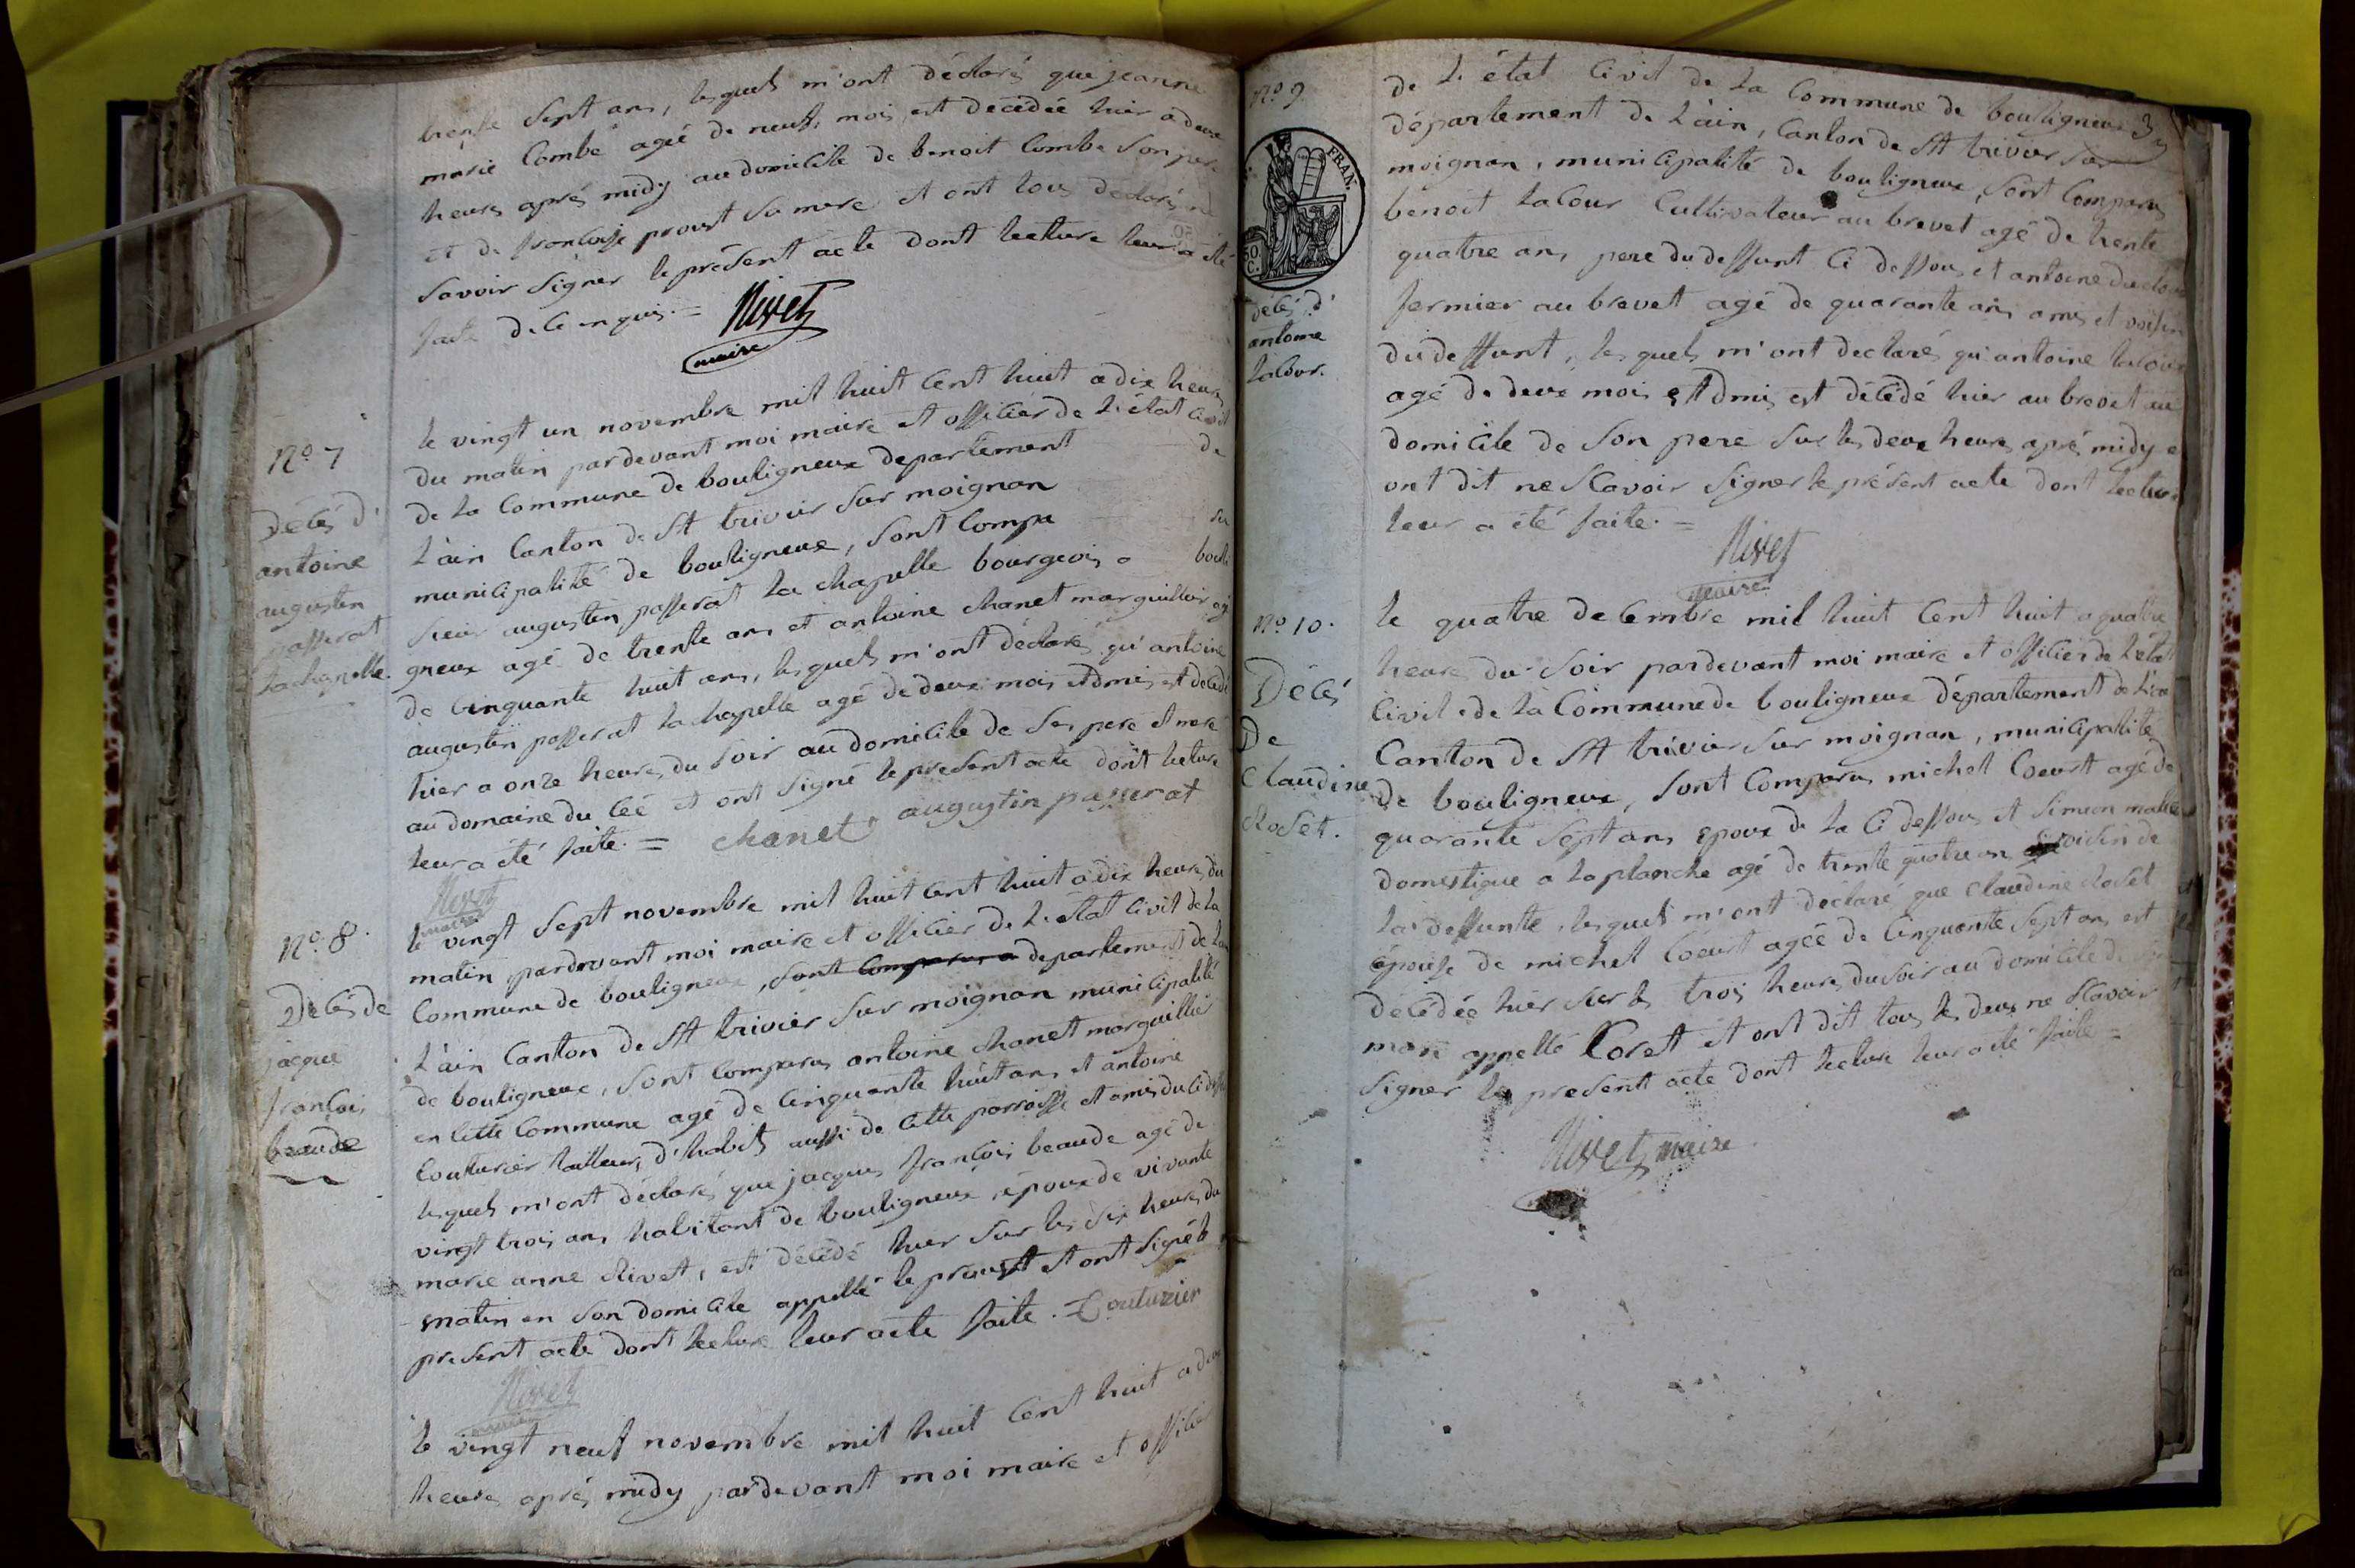 trente sept ans, lesquels m'ont déclarés que jeanne
marie Combe agée de neufs mois est decedée hier a deux
heures aprés midy au domicile de benoit Combe son pere
et de francoise proust sa mere et ont tous declarés ne
savoir signer le présent acte dont lecture leur a été
faite de ce enquis. = Nivet
maire
No 7
décés d'
antoine
augustin
passerat
lachapelle.
le vingt un novembre mil huit cent huit a dix heures
du matin pardevant moi maire et officier de l'état civil
de la commune de bouligneux departement de
l'ain Canton de St trivier sur moignan
municipalité de bouligneux, sont compa
sieur augustin passerat la chapelle bourgeois a bouli
greux agé de trente ans et antoine chanet marguillier agé
de cinquante huit ans, lesquels m'ont déclarés qu'antoine
augustin passerat la chapelle agé de deux mois et dmis est décédé
hier a onze heures du soir au domicile de ses pere et mere
au domaine du Cée et ont signé le present acte dont lecture
leur a été faite. = chanet augustin passerat
Nivet
maire
No 8.
Décés de
jacque
françois
beaude
le vingt sept novembre mil huit cent huit a dix heures du
matin pardevant moi maire et officier de l'etat civil de la
Commune de bouligneux, sont comparus a departement de
l'ain Canton de St trivier sur moignan municipalité
de bouligneux, sont comparus antoine chanet marguillier
en cette Commune agé de cinquante huit ans et antoine
Couturier tailleur d'habits aussi de cette parroisse et amis du ci
lesquels m'ont déclarés que jacques françois beaude agé de
vingt trois ans habitant de bouligneux, époux de vivante
marie anne Rivet, est décédé hier sur les dix heures du
matin en son domicile appellé le proust et ont signé le
present acte dont lecture leur a ete faite. = Couturier
Nivet
maire
le vingt neuf novembre mil huit cent huit a deux
heures aprés midy pardevant moi maire et officier
No 9.
FRAN.
50
C.
décés d'
antoine
lacour.
de l'état civil de la Commune de bouligneux
département de l'ain, Canton de St trivier sur
moignan, municipalité de bouligneux, sont comparus
benoit lacour Cultivateur au brevet agé de trente
quatre ans pere du deffunt ci dessous et antoine
fermier au brevet agé de quarante ans amis et voisin
du deffunt, lesquels m'ont declarés qu'antoine lacour
agé de deux mois et dmis est décédé hier au brevet au
domicile de son pere sur les deux heures aprés midy e
ont dit ne scavoir signer le présent acte dont lecture
leur a été faite. =
Nivet
maire
No 10.
Décés
De
Claudine
Roset.
le quatre decembre mil huit cent huit a quatre
heures du soir pardevant moi maire et officier de l'état
civil de la Commune de bouligneux département de l'ain
Canton de St trivier sur moignan, municipalité
de bouligneux, sont comparus michel Coeurt agé de
quarante sept ans epoux de la ci dessous et simeon
domestique a la planche agé de trente quatre ans voisin de
la deffunte, lesquels m'ont déclaré que Claudine Roset
épouse de michel Coeurt agée de cinquante sept ans est
décédée hier sur les trois heures du soir au domicile de son
mari appellé Coret et ont dit tous les deux ne scavoir
signer le present acte dont lecture leur a été faite =
Nivet maire